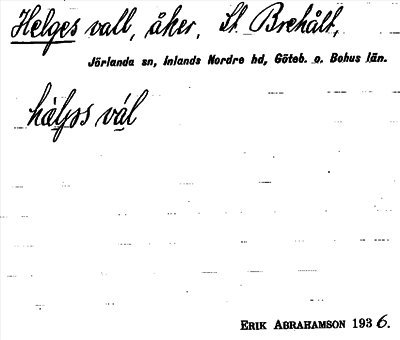 Helges vall, åker, St. Brehålt,
Jörlanda sn, Inlands Nordre hd, Göteb. o. Bohus län.
hàl̡jəs vál
ERIK ABRAHAMSON 1936.